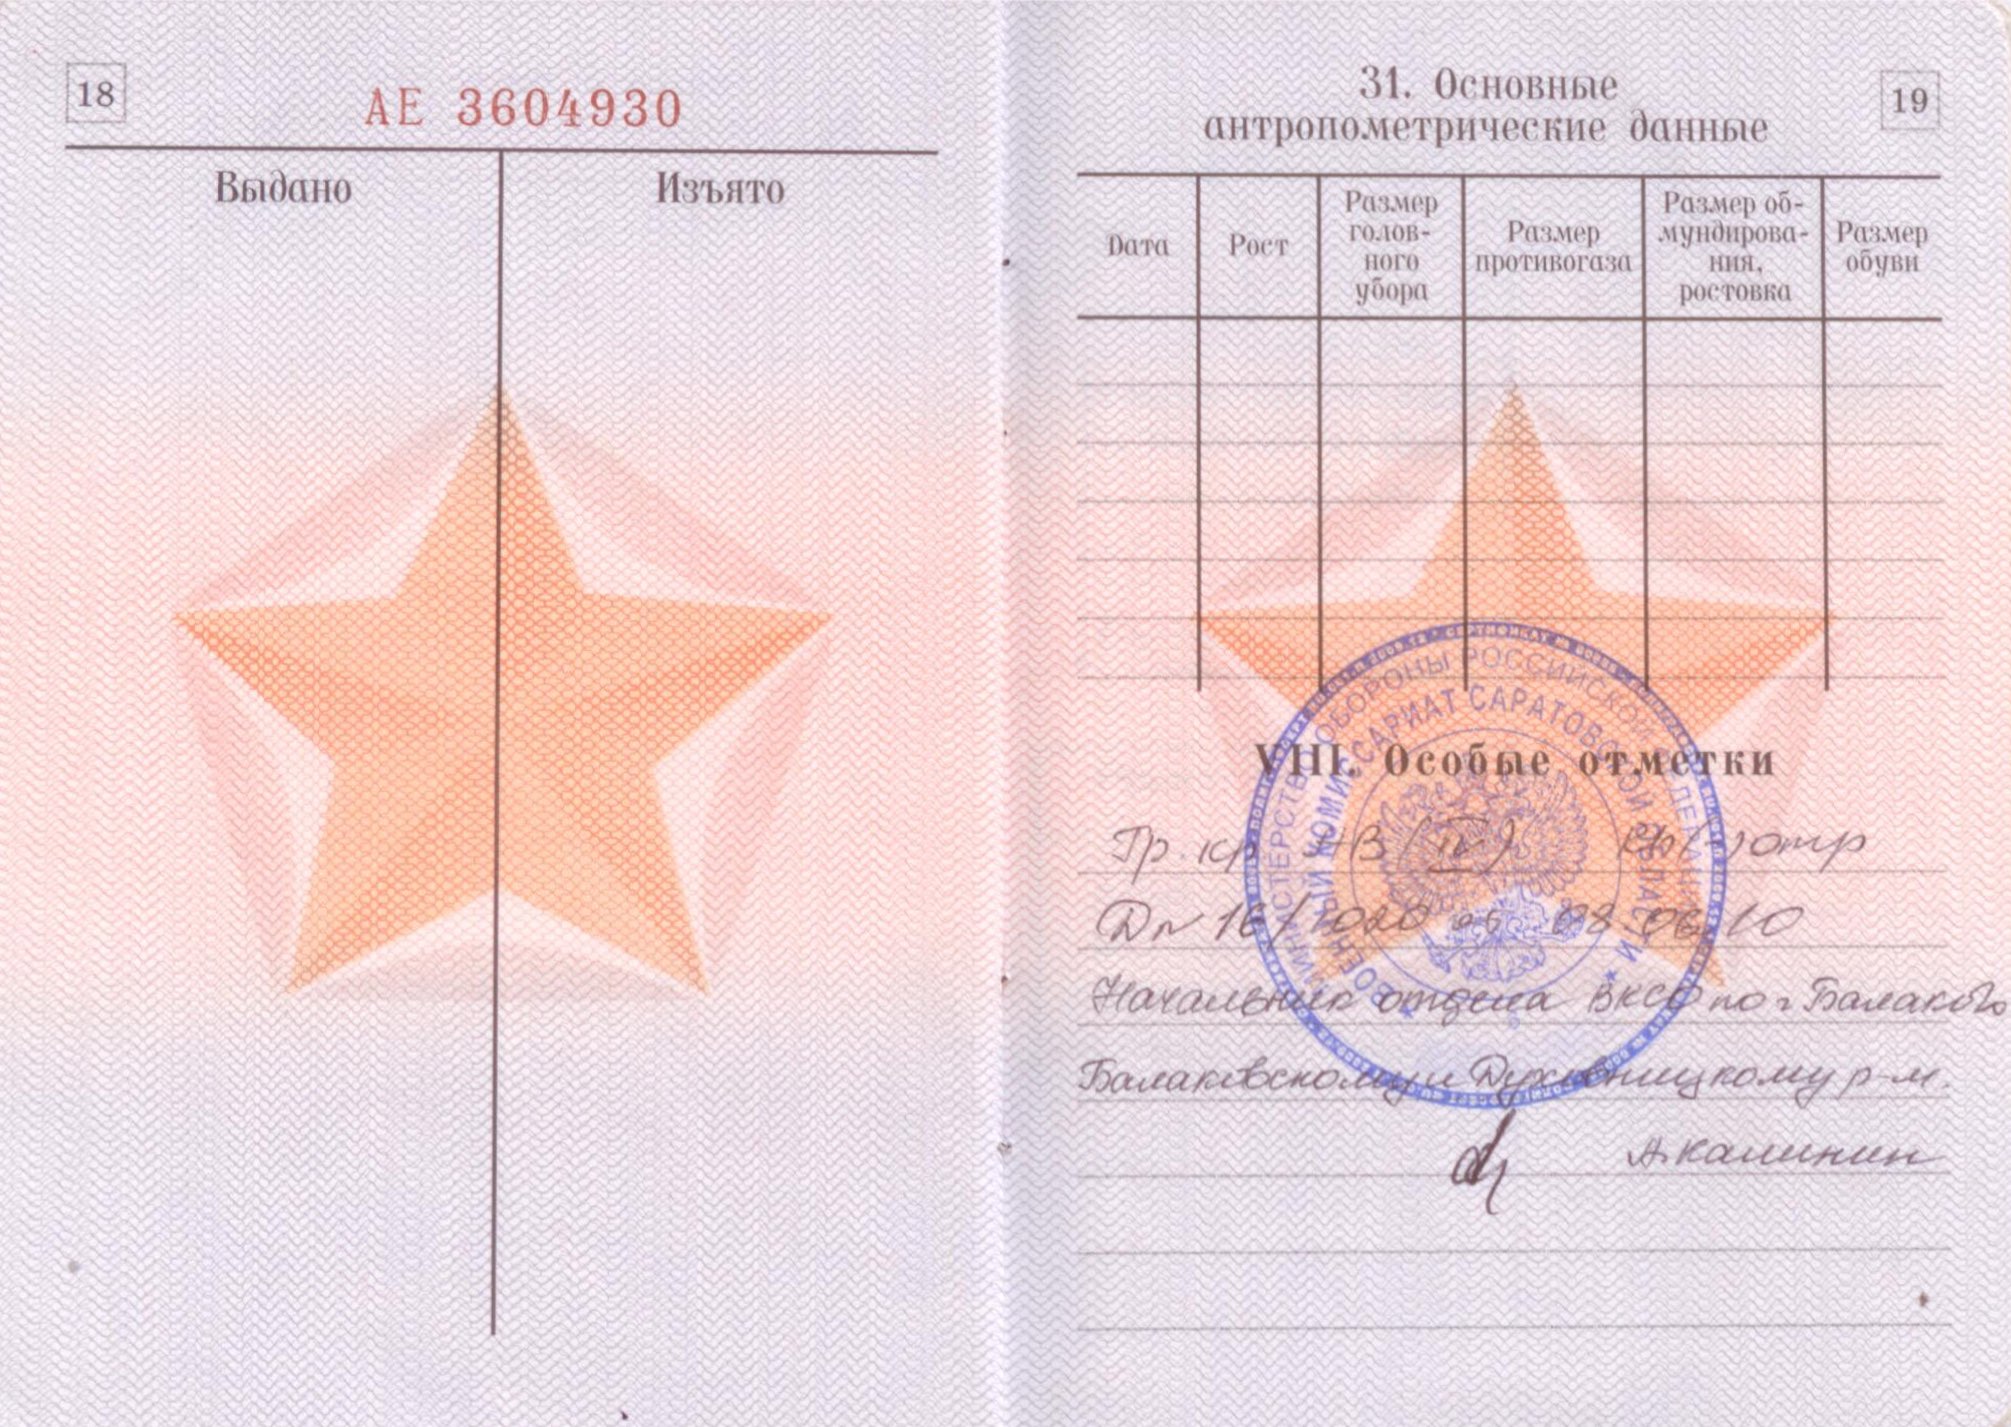 18
АЕ 3604930
Выдано
Изъято
31. Основные
антропометрические данные
19
Дата
Рост
Размер
голов-
ного
убора
Размер
противогаза
Размер об-
мундирова-
ния,
ростовка
Размер
обуви
VIII. Особые отметки
Гр. кр (IV)
08.06.10
Начальник отдела ВКСО по г Балаково
Балаковскому и Духовницкому р-м.
А. Калинин
МИНИСТЕРСТВО ОБОРОНЫ РОССИЙСКОЙ ФЕДЕРАЦИИ
ВОЕННЫЙ КОМИССАРИАТ САРАТОВСКОЙ ОБЛАСТИ